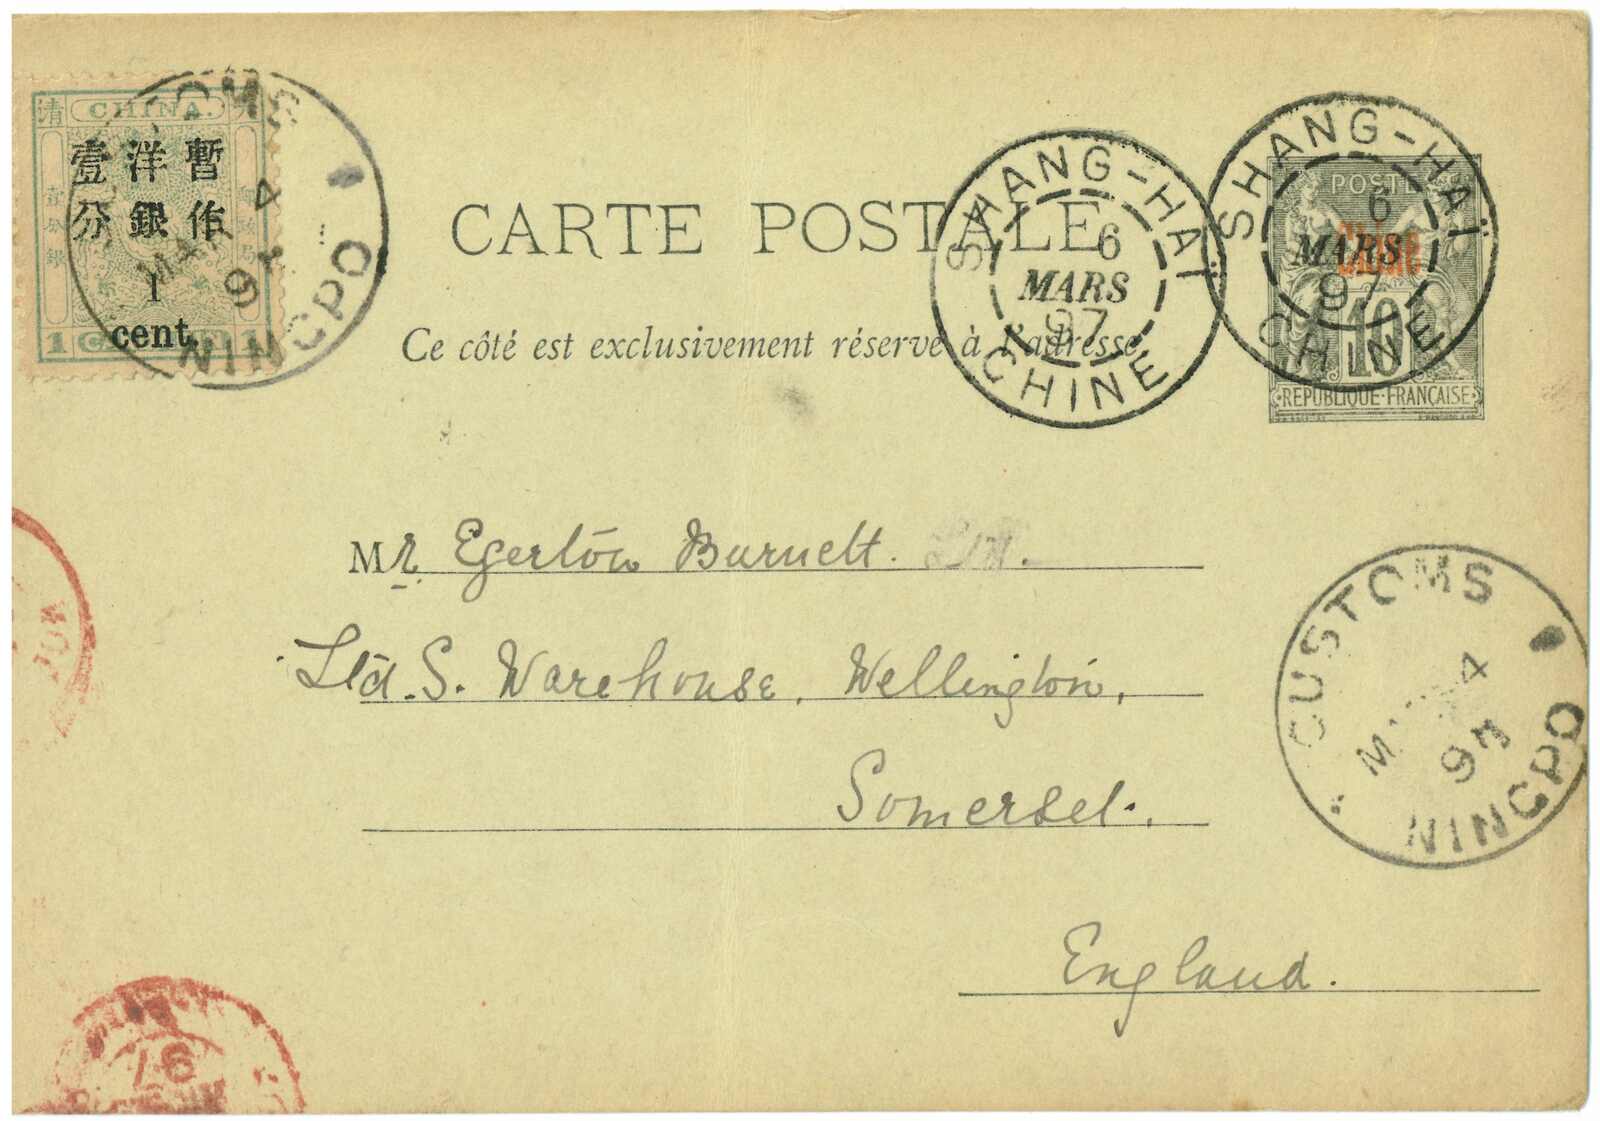 清 CHINA.
暫作
洋銀
壹分
1
cent.
1 1
CUSTOMS
MAR 4
97
NINGPO
CARTE POSTALE
Ce côté est exclusivement réservé à l'adresse
SHANG-HAÏ
6
MARS
97
CHINE
SHANG-HAÏ
6
MARS
97
CHINE
POSTES
Chine
10
REPUBLIQUE·FRANÇAISE
Mr. Egerton Burnett. Ltd.
Ltd. S. Warehouse, Wellington,
Somerset.
England.
CUSTOMS
4
97
NINGPO
97